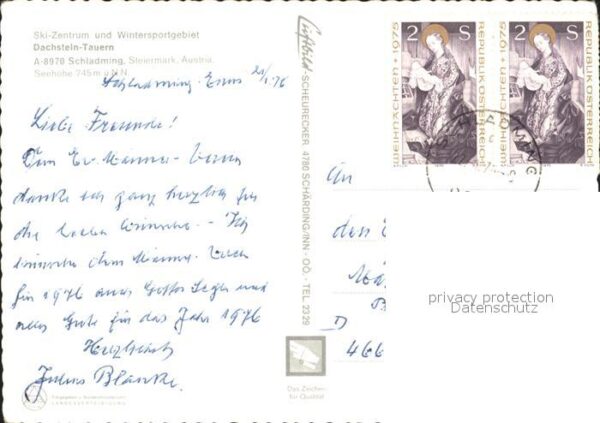 Ski-Zentrum und Wintersportgebiet
Dachstein-Tauern
A-8970 Schladming, Steiermark, Austria
Seehöhe 745m ü.N.N.
Schladming-Enns /76
Liebe Freunde!
Dem Ev. Männer-
danke ich ganz herzlich für
die lieben Wünsche. - Ich
wünsche dem Männer
für 1976 Gottes Segen und
alles Gute für das Jahr 1976
Herzlichst
Julius Blanke.
Luftbild SCHEURECKER 4780 SCHÄRDING/INN - OÖ. - TEL 2329
Das Zeichen
für Qualität
2 S
WEIHNACHTEN + 1975
REPUBLIK ÖSTERREICH
2 S
WEIHNACHTEN + 1975
REPUBLIK ÖSTERREICH
An
den
D
466
privacy protection
Datenschutz